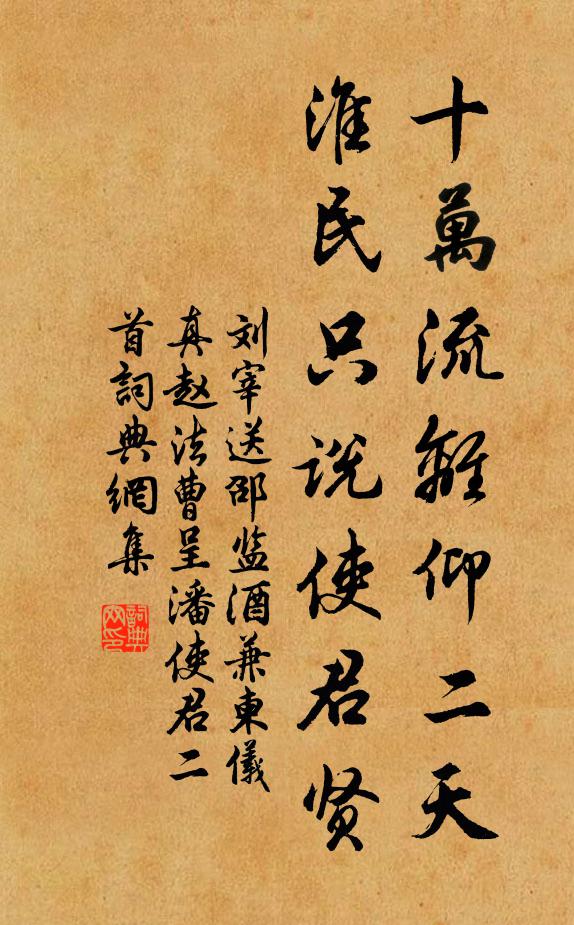 十萬流離仰二天
淮民只说使君贤
刘宰送邵监酒兼東儀
真赵法曹呈潘使君二
首詞典網集
詞典网印